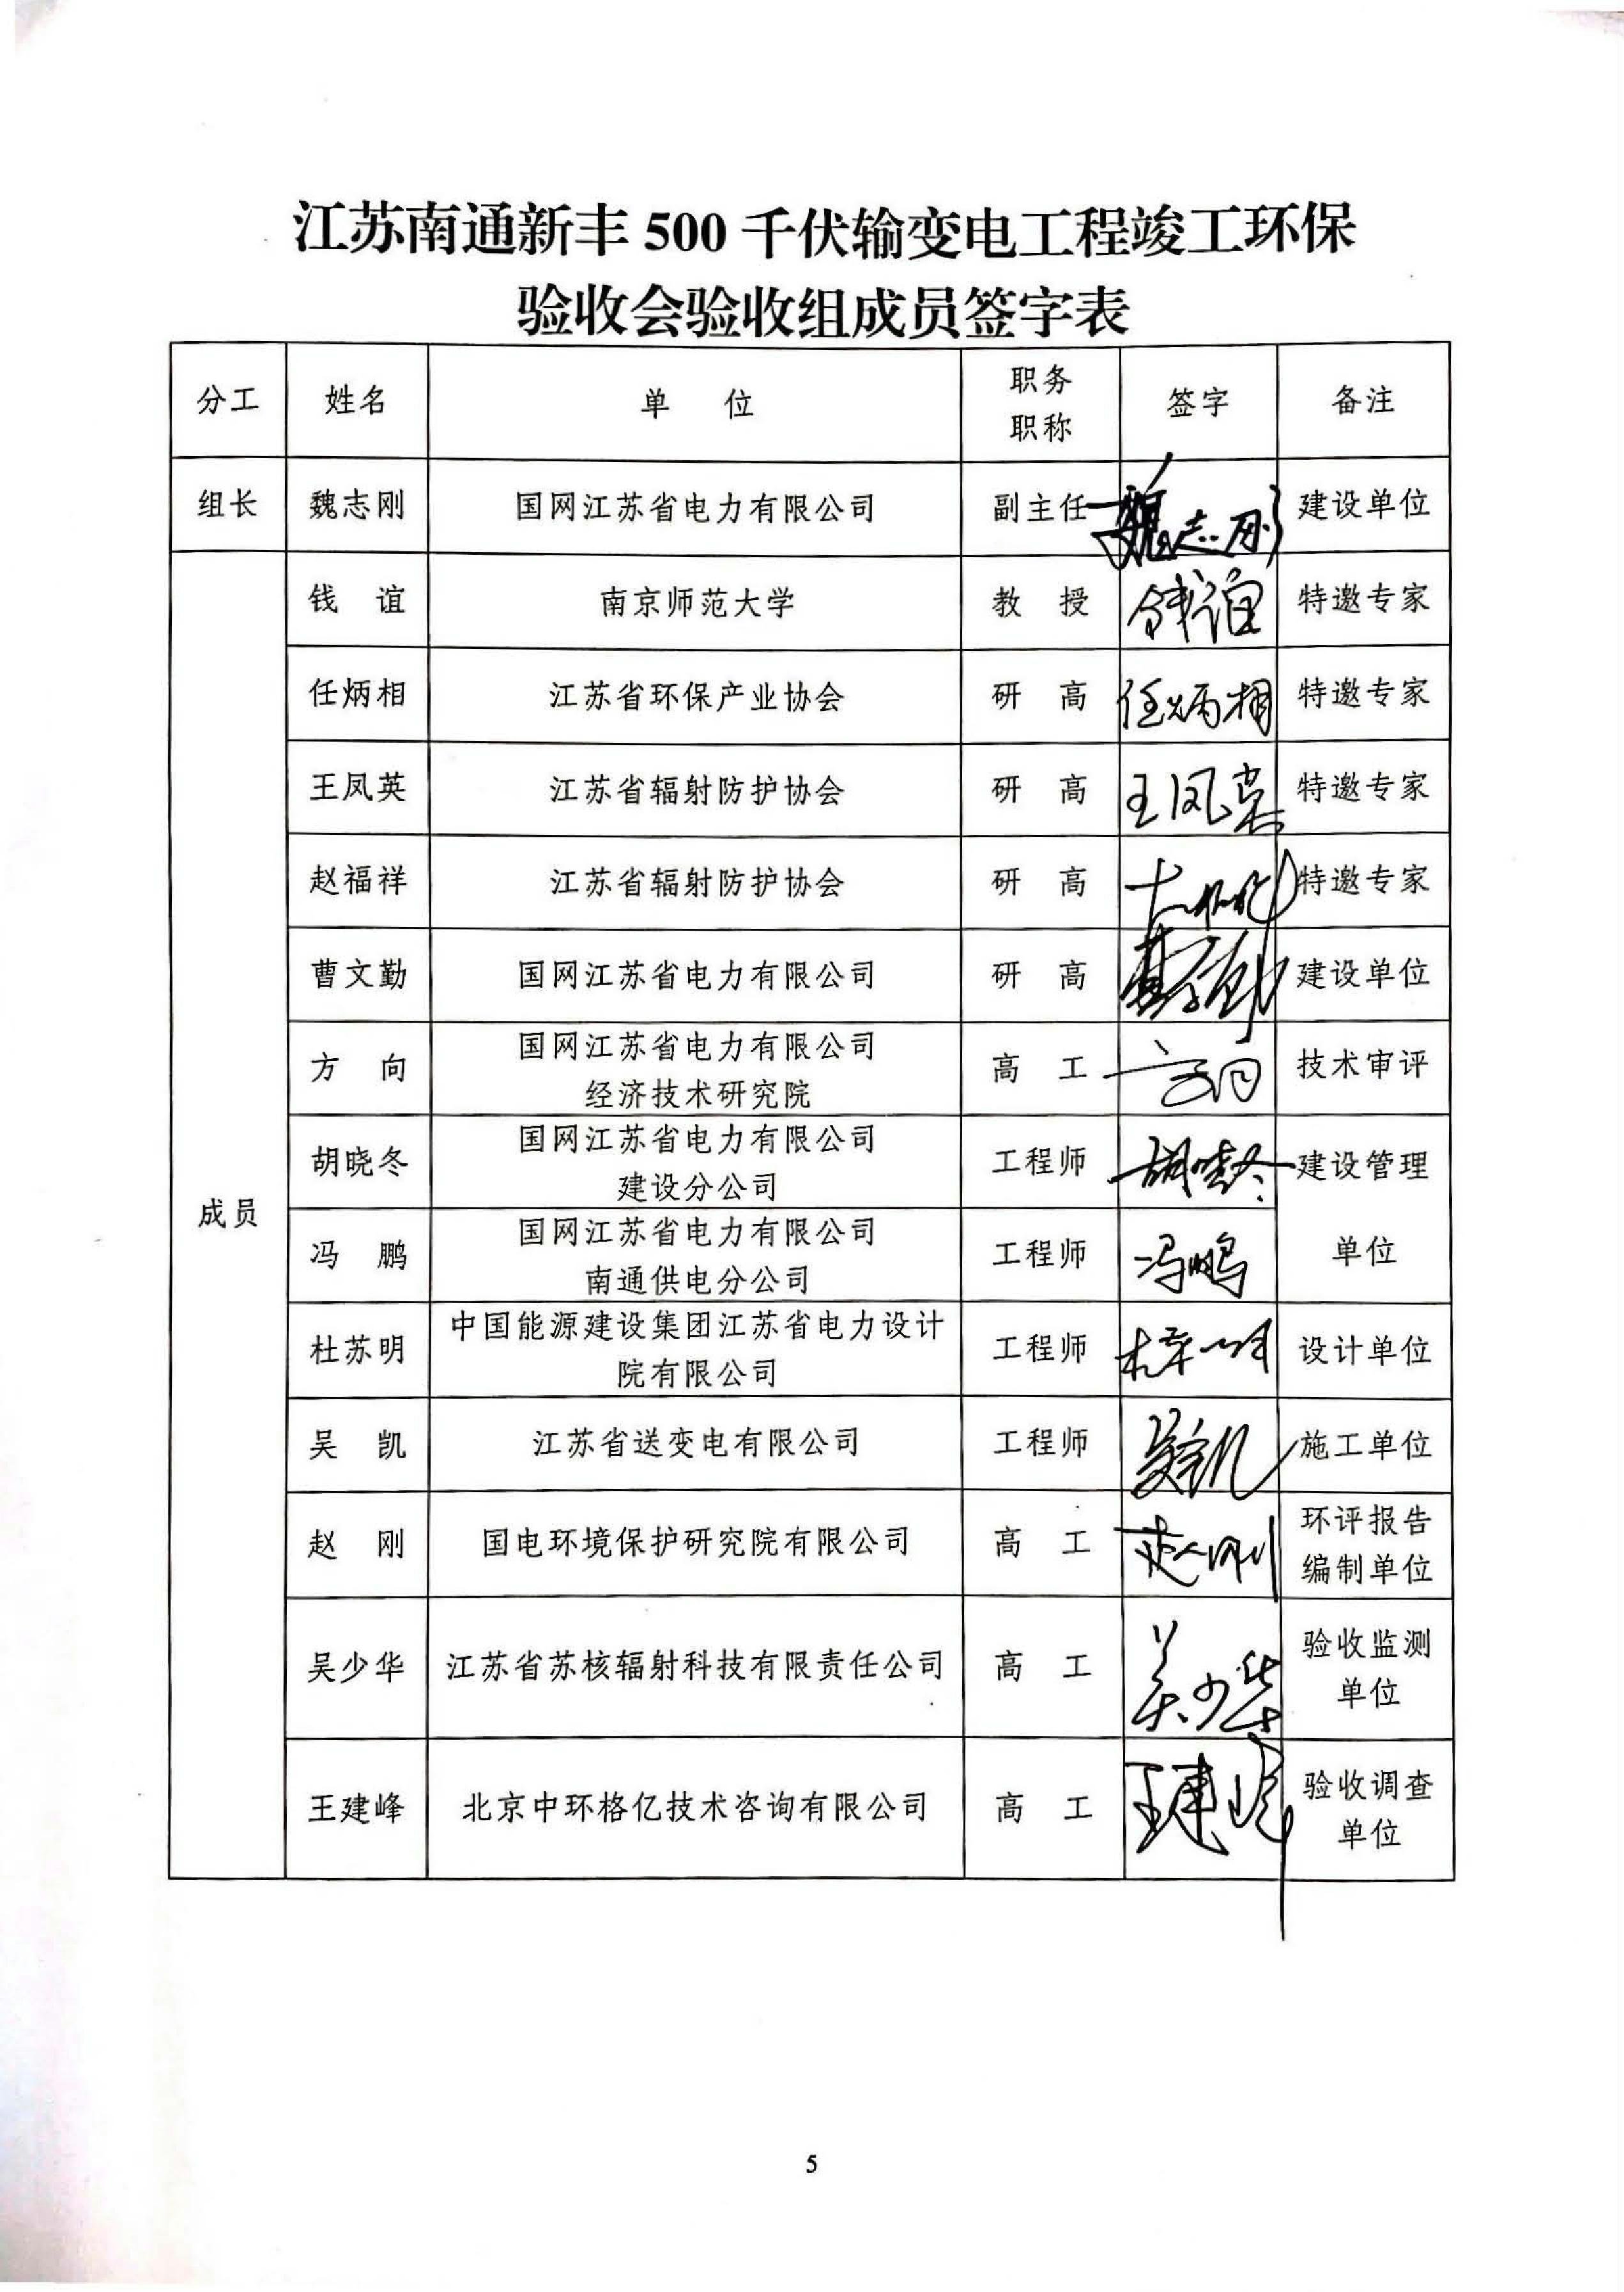 江苏南通新丰 500 千伏输变电工程竣工环保
验收会验收组成员签字表
分工 姓名 单 位 职务职称 签字 备注
组长 魏志刚 国网江苏省电力有限公司 副主任 魏志刚 建设单位
成员
钱 谊 南京师范大学 教 授 钱谊 特邀专家
任炳相 江苏省环保产业协会 研 高 任炳相 特邀专家
王凤英 江苏省辐射防护协会 研 高 王凤英 特邀专家
赵福祥 江苏省辐射防护协会 研 高 特邀专家
曹文勤 国网江苏省电力有限公司 研 高 建设单位
方 向 国网江苏省电力有限公司 高 工 方向 技术审评
经济技术研究院
胡晓冬 国网江苏省电力有限公司 工程师 胡晓冬 建设管理
建设分公司
冯 鹏 国网江苏省电力有限公司 工程师 冯鹏 单位
南通供电分公司
杜苏明 中国能源建设集团江苏省电力设计 工程师 杜苏明 设计单位
院有限公司
吴 凯 江苏省送变电有限公司 工程师 吴凯 施工单位
赵 刚 国电环境保护研究院有限公司 高 工 赵刚 环评报告
编制单位
吴少华 江苏省苏核辐射科技有限责任公司 高 工 吴少华 验收监测
单位
王建峰 北京中环格亿技术咨询有限公司 高 工 王建峰 验收调查
单位
5